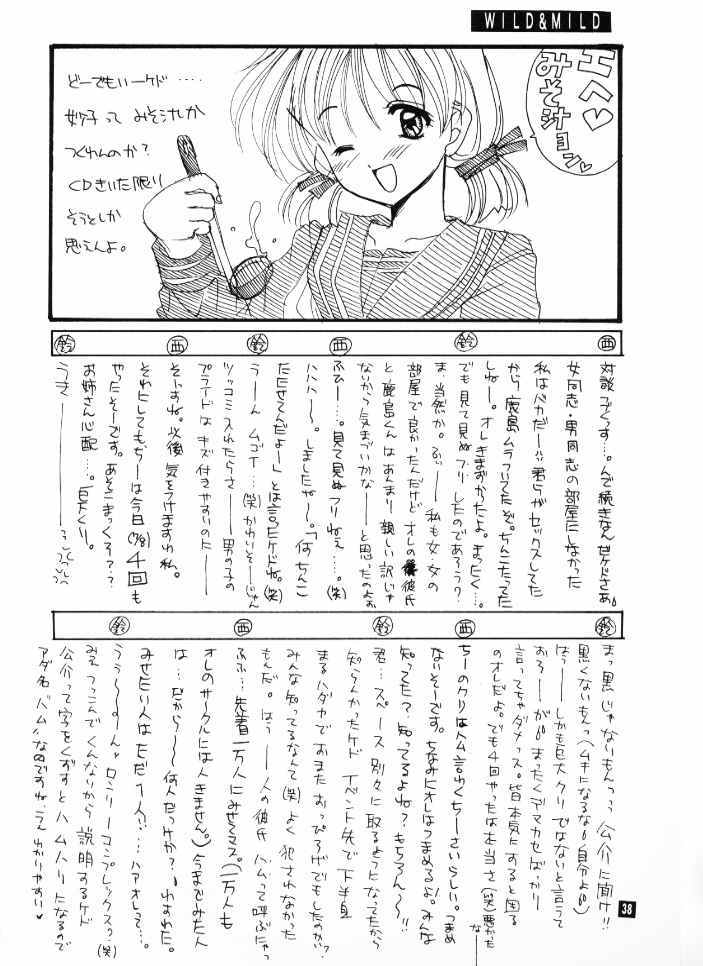 WILD&MILD
エへ♡
みそ汁ョン♡
どーでもいーケド‥‥
妙子って みそ汁しか
つくれんのか？
CDきいた限り
そうとしか
思えんよ。
西
鈴
西
鈴
西
鈴
女同志・男同志の部屋にしなかった
私はバカだー
しねー。オレきまずかったよ。まったく…。
でも見て見ぬフリしたのであろう？
ま、当然か。ふぃー私も女女の
部屋で良かったんだけどオレの彼氏
と鹿島くんはあんまり親しい訳じゃ
ないから気まづいかなーと思ったのよぉ
見て見ぬフリねぇ……。(笑)
ハハハー。しましたなー。「何ちんこ
たたせてんだよー」とは言ったケドね。(笑)
うーん ムゴイ…(笑)かわいそーじゃん
ツッコミ入れたらさー男の子の
プライドはキズ付きやすいのだー
そーすね。以後気をつけますわ私。
それにしてもちーは今日4回も
やったそーです。あそこまっくろ？？
お姉さん心配…。
鈴
西
鈴
西
鈴
まっ黒じゃないもんっっ 公介に聞け!!
黒くないもんっ(ムキになるな自分よ)
はうーしかも巨大クリではないと言って
おろーが
言ってちゃダメっス。皆本気にすると困る
のオレだよ。でも4回やったは本当さ(笑)悪かったなー
ないそーです。ちなみにオレはつまめるよ!みんな
知ってた？知ってるよね？もちろん〜!!
君…スペース別々に取るようになってたから
知らんかったケド イベント先で下半身
まるハダカでおまたおっぴろげでもしたのかい?
みんな知ってるなんて(笑)よく犯されなかった
もんだ。はうー人の彼氏 ハムって呼ぶにゃっ
ふふ…先着一万人にみせてマス。(一万人も
オレのサークルには人きません。)今までみた人
は…だから〜何人だっけか？わすれた。
みせたい人はただ1人…
ロンリーコンプレックス？(笑)
つっこんでくんないから説明するケド
公介って字をくずすとハムハりになるので
アダ名"ハム"なのですね、うん わかりやすい♥
38